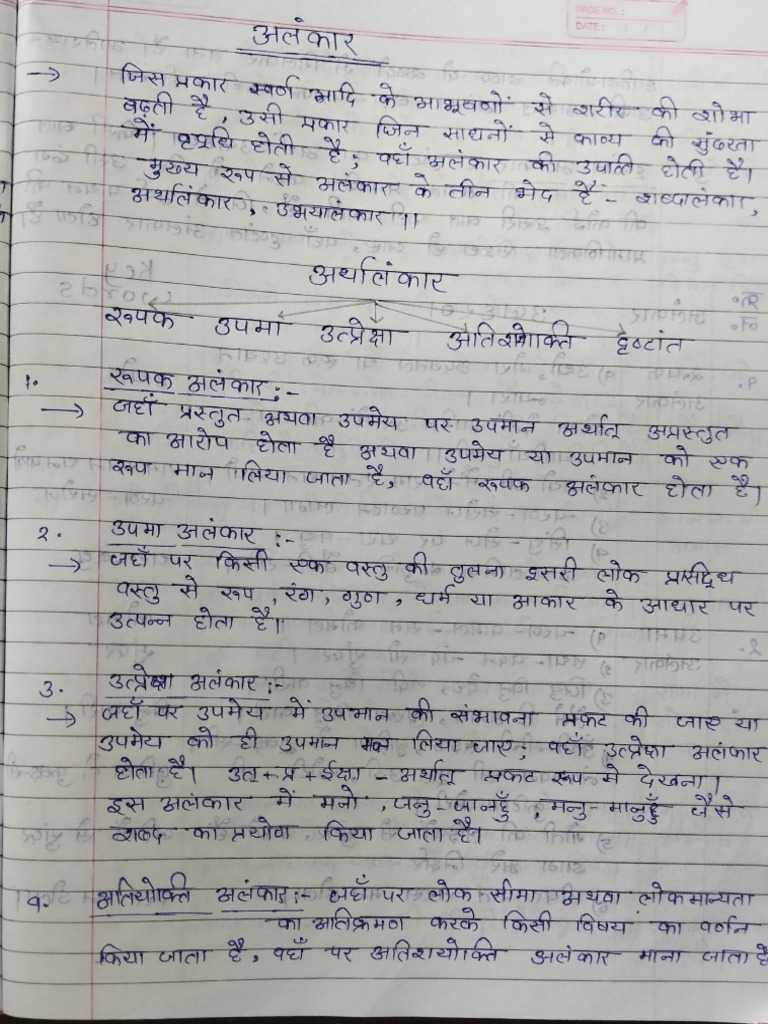 PAGE NO.:
DATE:
अलंकार
→ जिस प्रकार स्वर्ण आदि के आभूषणों से शरीर की शोभा
बढ़ती है, उसी प्रकार जिन साधनों से काव्य की सुंदरता
में होती है; वहाँ अलंकार की उपांती होती है।
मुख्य रूप से अलंकार के तीन भेद हैं - शब्दालंकार,
अर्थालंकार, उभयालंकार।।
अर्थालंकार
रूपक उपमा उत्प्रेक्षा अतिशयोक्ति दृष्टांत
१. रूपक अलंकार :-
→ जहाँ प्रस्तुत अथवा उपमेय पर उपमान अर्थात् अप्रस्तुत
का आरोप होता है अथवा उपमेय या उपमान को एक
रूप मान लिया जाता है, वहाँ रूपक अलंकार होता है।
२. उपमा अलंकार :-
→ जहाँ पर किसी एक वस्तु की तुलना दूसरी लोक प्रसिद्धि
वस्तु से रूप, रंग, गुण, धर्म या आकार के आधार पर
उत्पन्न होता है।
३. उत्प्रेक्षा अलंकार :-
→ जहाँ पर उपमेय में उपमान की संभावना प्रकट की जाए या
उपमेय को ही उपमान मान लिया जाए; वहाँ उत्प्रेक्षा अलंकार
होता है। उत् + प्र + ईक्षा - अर्थात् प्रकट रूप से देखना।
इस अलंकार में मनो, जनु, जानहुँ, मनु - मानुहुँ जैसे
शब्द का प्रयोग किया जाता है।
४. अलंकार :- जहाँ पर लोक सीमा अथवा लोकमान्यता
का अतिक्रमण करके किसी विषय का वर्णन
किया जाता है, वहाँ पर अतिशयोक्ति अलंकार माना जाता है